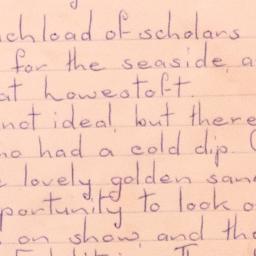 chload of scholars
for the seaside, a
at Lowestoft.
not ideal, but there
ho had a cold dip. (
e lovely golden san
portunity to look o
s on show, and th